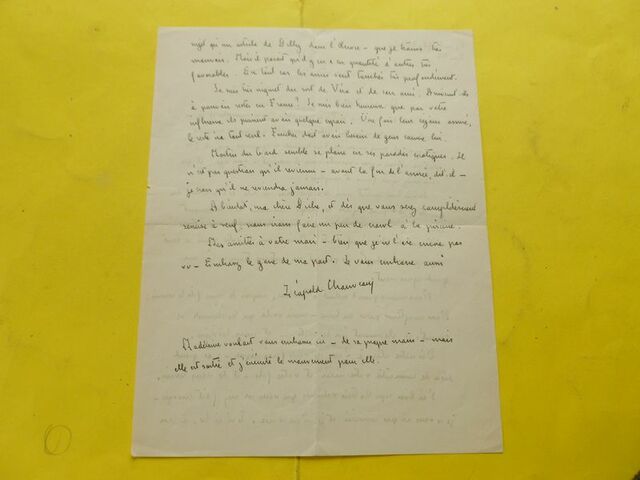 qu'un article de Billy dans l'Œuvre - que je trouve très
mauvais. Mais il paraît qu'il y en a eu quantité d'autres très
favorables. - En tout cas les amis sont touchés très profondément.
Je suis très inquiet du sort de Vera et de son ami.
à pouvoir rester en France? Je suis bien heureux que par votre
influence ils puissent avoir quelque espoir. Une fois leur
le reste ira tout seul. doit avoir besoin de gens comme lui.
Martin du Gard semble se plaire en ses paradis exotiques. Il
n'est pas question qu'il revienne - avant la fin de l'année, dit-il -
je crois qu'il ne reviendra jamais.
A bientôt, ma chère et dès que vous serez complètement
remise à neuf nous irons faire un peu de crawl à la piscine.
Mes amitiés à votre mari - bien que je ne l'aie encore pas
vu - Embrassez le gosse de ma part. Je vous embrasse aussi
Léopold Chauveau
Madeleine voulait vous embrasser ici - de sa propre main - mais
elle est sortie et j'exécute le mouvement pour elle.